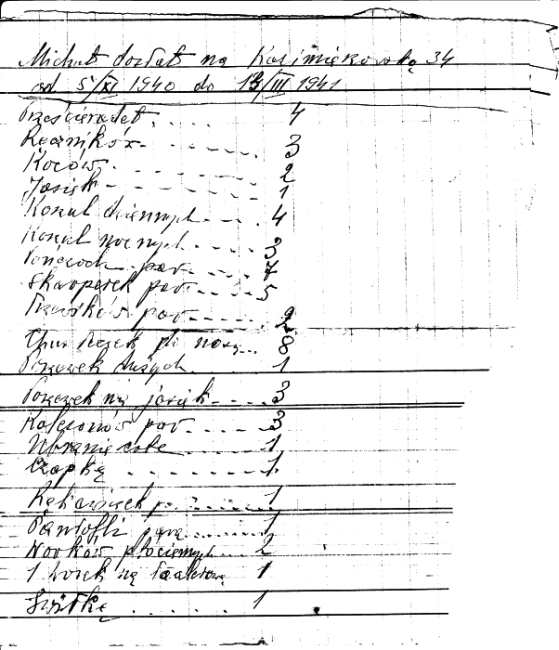 Michał dostał na Kazimierzowską 34
od 5/XI 1940 do 13/III 1941
Prześcieradeł . . . . 4
Ręczników - - - - - 3
Koców - - - - - 2
Jasiek - - - - - 1
Koszul dziennych - - - - 4
Koszul nocnych - - - - 3
Pończoch par - - - -
Skarperek par - - - - 5
par - - - -
Chusteczek do nosa - - 8
Poszewek dużych 1
Poszewek na jasiek - - - 3
Kalesonów par - - - - 3
Ubranie całe - - - - 1
Czapkę . . . . . . 1
Rękawiczek p. - - - - 1
Pantofli parę . . . . . . 1
Worków płóciennych . . . . 2
1 worek na 1
1